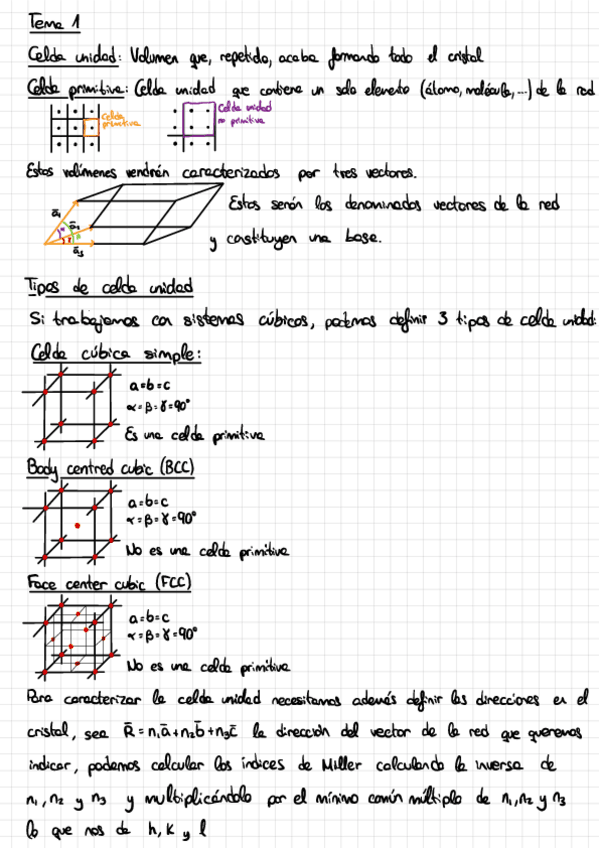 Tema 1
Celda unidad: Volumen que, repetido, acaba formando todo el cristal
Celda primitiva: Celda unidad que contiene un solo elemento (átomo, molécula, ...) de la red
Celda
primitiva
Celda unidad
no primitiva
Estos volúmenes vendrán caracterizados por tres vectores.
Estos serán los denominados vectores de la red
y constituyen una base.
Tipos de celda unidad
Si trabajamos con sistemas cúbicos, podemos definir 3 tipos de celda unidad:
Celda cúbica simple:
a=b=c
α=β=γ=90°
Es una celda primitiva
Body centred cubic (BCC)
a=b=c
α=β=γ=90°
No es una celda primitiva
Face center cubic (FCC)
a=b=c
α=β=γ=90°
No es una celda primitiva
Para caracterizar la celda unidad necesitamos además definir las direcciones en el
cristal, sea R̄ = n₁ā+n₂b̄+n₃c̄ la dirección del vector de la red que queremos
indicar, podemos calcular los índices de Miller calculando la inversa de
n₁, n₂ y n₃ y multiplicándolo por el mínimo común múltiplo de n₁, n₂ y n₃
lo que nos da h, k y l